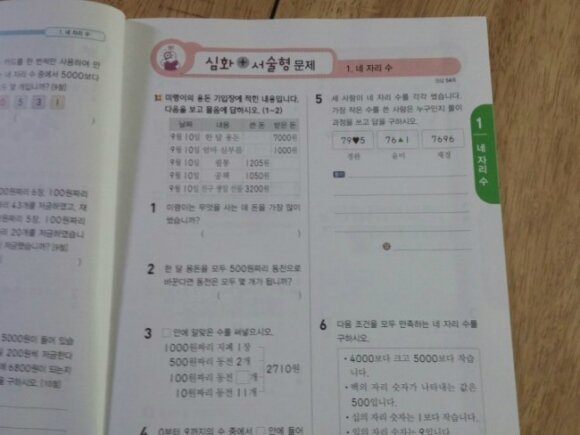 1. 네 자리 수
카드를 한 번씩만 사용하여 만
네 자리 수 중에서 5000보다
0 5 3 1
00원짜리 6장, 100원짜리
리 43개를 저금하였고, 재
원짜리 5장, 100원짜리
리 20개를 저금했습니
저금했습니까? [9점]
5000원이 들어 있습
200원씩 저금한다
6800원이 되는지
구하시오. [10점]
심화 + 서술형 문제
1. 네 자리 수
미령이의 용돈 기입장에 적힌 내용입니다.
다음을 보고 물음에 답하시오. (1~2)
날짜 내용 쓴 돈 받은 돈
9월 10일 한 달 용돈 7000원
9월 10일 엄마 심부름 1000원
9월 10일 필통 1205원
9월 10일 공책 1050원
9월 10일 친구 생일 선물 3200원
1 미령이는 무엇을 사는 데 돈을 가장 많이
썼습니까?
( )
2 한 달 용돈을 모두 500원짜리 동전으로
바꾼다면 동전은 모두 몇 개가 됩니까?
( )
3 □ 안에 알맞은 수를 써넣으시오.
1000원짜리 지폐 1장
500원짜리 동전 2개
100원짜리 동전 □개
10원짜리 동전 11개
2710원
4 0부터 9까지의 수 중에서 □ 안에 들어
5 세 사람이 네 자리 수를 각각 썼습니다.
가장 작은 수를 쓴 사람은 누구인지 풀이
과정을 쓰고 답을 구하시오.
79♥5 76▲1 7696
정환 윤미 재경
풀이
답
6 다음 조건을 모두 만족하는 네 자리 수를
구하시오.
• 4000보다 크고 5000보다 작습
니다.
• 백의 자리 숫자가 나타내는 값은
500입니다.
• 십의 자리 숫자는 1보다 작습니다.
• 일의 자리 숫자는 9입니다.
1
네 자리 수